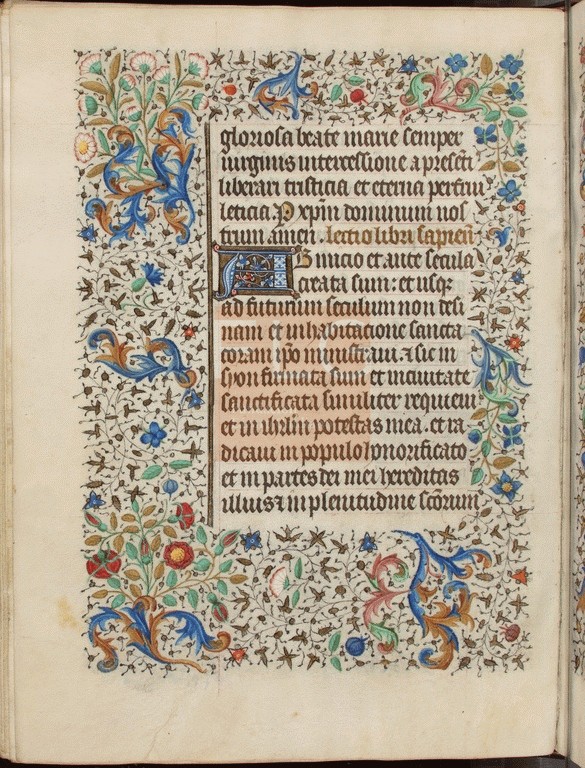 gloriosa beate marie semper
uirginis intercessione a presenti
liberari tristicia et eterna perfrui
leticia P xpm dominum nos
trum amen. lectio libri sapien
Ab inicio et ante secula
creata sum: et usqz
ad futurum seculum non desi
nam et in habitacione sancta
coram ipo ministraui. ⁊ sic in
syon firmata sum et in ciuitate
sanctificata similiter requieui
et in ihrlm potestas mea. et ra
dicaui in populo honorificato
et in partes dei mei hereditas
illius ⁊ in plenitudine scorum